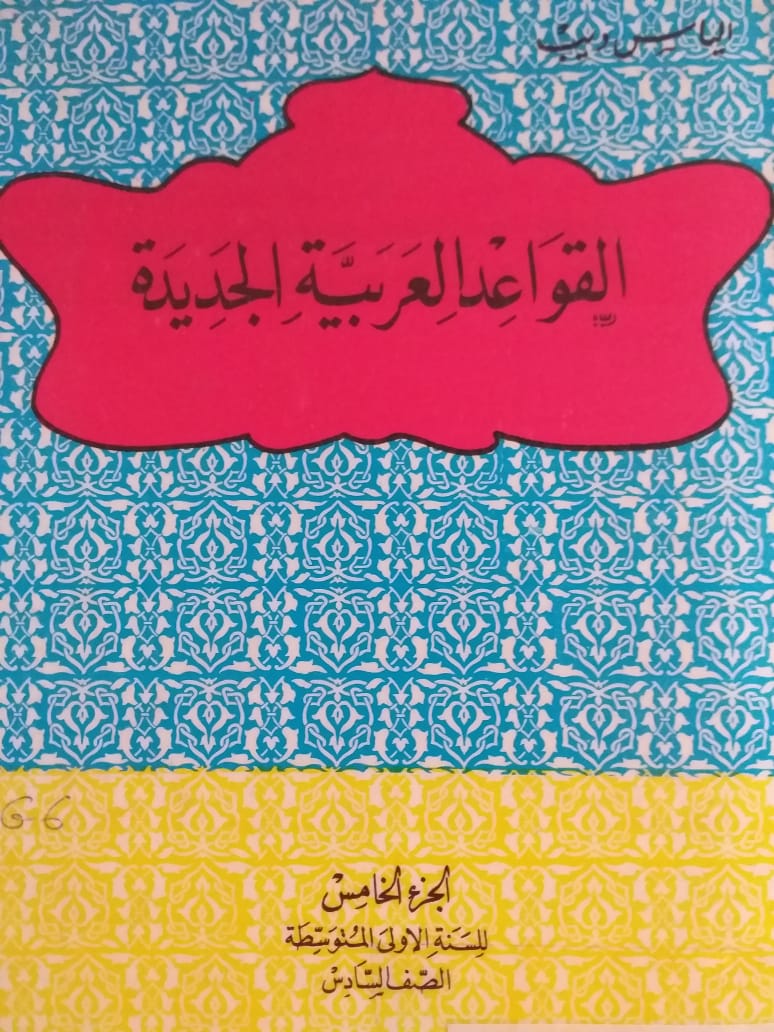 الياس ديب
القَوَاعِدُ العَرَبيَّةِ الجَدِيدَة
G6
الجزء الخامِسْ
للِسَنَةِ الاولىَ المُتوَسِّطَة
الصَّف السَّادِسْ